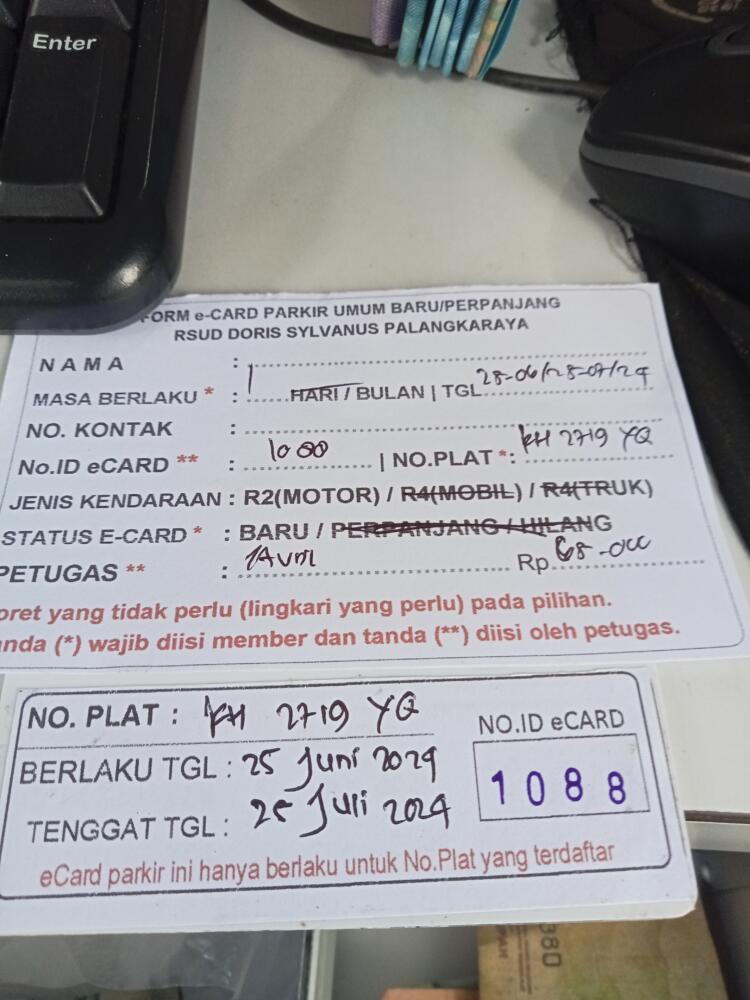 Enter
FORM e-CARD PARKIR UMUM BARU/PERPANJANG
RSUD DORIS SYLVANUS PALANGKARAYA
NAMA :
MASA BERLAKU * : 1 HARI / BULAN | TGL 25-06/25-07/24
NO. KONTAK :
No.ID eCARD ** : 1088 | NO.PLAT *: KH 2719 YQ
JENIS KENDARAAN : R2(MOTOR) / R4(MOBIL) / R4(TRUK)
STATUS E-CARD * : BARU / PERPANJANG / HILANG
PETUGAS ** : Rp 68.000
oret yang tidak perlu (lingkari yang perlu) pada pilihan.
anda (*) wajib diisi member dan tanda (**) diisi oleh petugas.
NO. PLAT : KH 2719 YQ
NO.ID eCARD
1088
BERLAKU TGL : 25 Juni 2024
TENGGAT TGL : 25 Juli 2024
eCard parkir ini hanya berlaku untuk No.Plat yang terdaftar
380